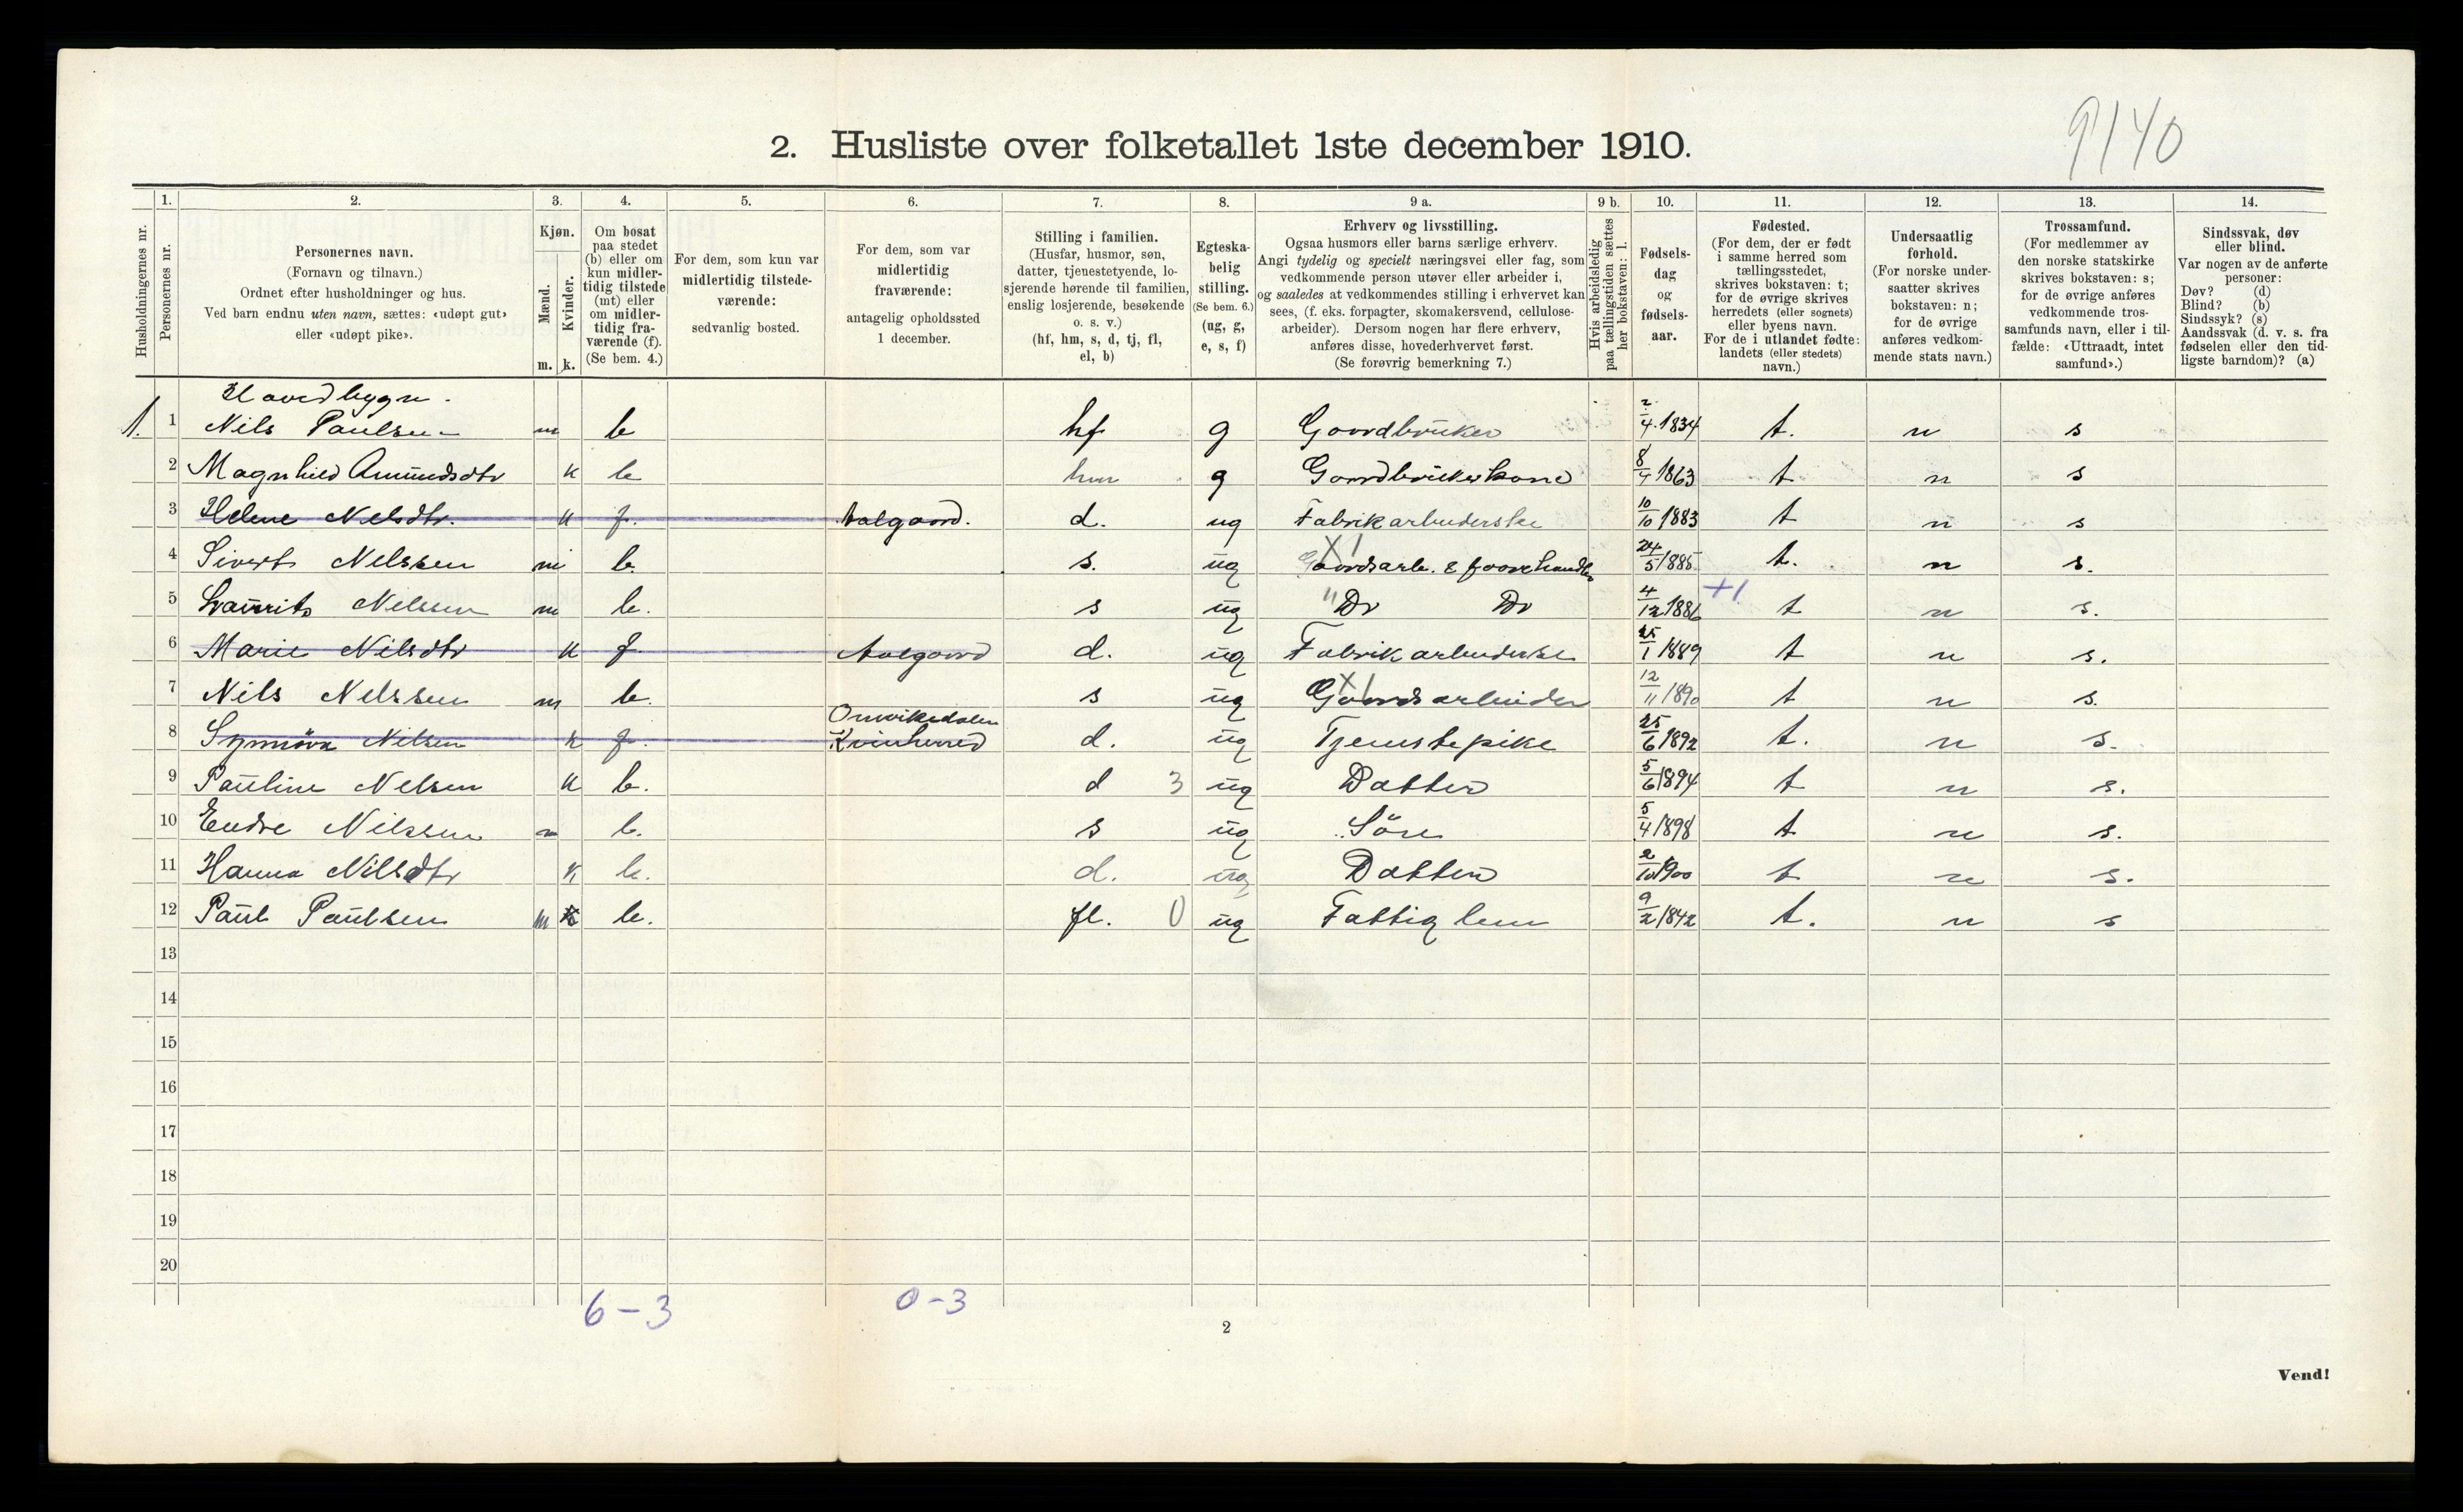 9140
2. Husliste over folketallet 1ste december 1910.
1. 2. 3. 4. 5. 6. 7. 8. 9 a. 9 b. 10. 11. 12. 13. 14.
Husholdningernes nr.
Personernes nr.
Personernes navn.
(Fornavn og tilnavn.)
Ordnet efter husholdninger og hus.
Ved barn endnu uten navn, sættes: «udøpt gut»
eller «udøpt pike».
Kjøn.
Mænd.
Kvinder.
m. k.
Om bosat
paa stedet
(b) eller om
kun midler-
tidig tilstede
(mt) eller
om midler-
tidig fra-
værende (f).
(Se bem. 4.)
For dem, som kun var
midlertidig tilstede-
værende:
sedvanlig bosted.
For dem, som var
midlertidig
fraværende:
antagelig opholdssted
1 december.
Stilling i familien.
(Husfar, husmor, søn,
datter, tjenestetyende, lo-
sjerende hørende til familien,
enslig losjerende, besøkende
o. s. v.)
(hf, hm, s, d, tj, fl,
el, b)
Egteska-
belig
stilling.
(Se bem. 6.)
(ug, g,
e, s, f)
Erhverv og livsstilling.
Ogsaa husmors eller barns særlige erhverv.
Angi tydelig og specielt næringsvei eller fag, som
vedkommende person utøver eller arbeider i,
og saaledes at vedkommendes stilling i erhvervet kan
sees, (f. eks. forpagter, skomakersvend, cellulose-
arbeider). Dersom nogen har flere erhverv,
anføres disse, hovederhvervet først.
(Se forøvrig bemerkning 7.)
Hvis arbeidsledig
paa tællingstiden sættes
her bokstaven: l.
Fødsels-
dag
og
fødsels-
aar.
Fødested.
(For dem, der er født
i samme herred som
tællingsstedet,
skrives bokstaven: t;
for de øvrige skrives
herredets (eller sognets)
eller byens navn.
For de i utlandet fødte:
landets (eller stedets)
navn.)
Undersaatlig
forhold.
(For norske under-
saatter skrives
bokstaven: n;
for de øvrige
anføres vedkom-
mende stats navn.)
Trossamfund.
(For medlemmer av
den norske statskirke
skrives bokstaven: s;
for de øvrige anføres
vedkommende tros-
samfunds navn, eller i til-
fælde: «Uttraadt, intet
samfund».)
Sindssvak, døv
eller blind.
Var nogen av de anførte
personer:
Døv? (d)
Blind? (b)
Sindssyk? (s)
Aandssvak (d. v. s. fra
fødselen eller den tid-
ligste barndom)? (a)
Hovedbygn.
1. 1 Nils Paulsen m b hf g Gaardbruker 2/4 1834 t. n s
2 Magnhild Amundsdtr k b hm g Gaardbrukerkone 8/4 1863 t n s
3 Helene Nelsdtr. k f. Aalgaard. d. ug Fabrikarbeiderske 10/10 1883 t n s
X 1
4 Sivert Nelssen m b. s. ug Gaardsarb. & faarehandler 24/5 1885 t. n s.
5 Laurits Nelssen m b. s ug " Do Do 4/12 1886 +1 t n s.
6 Marie Nilsdtr k f Aalgaard d. ug Fabrikarbeiderske 25/1 1889 t n s.
X 1
7 Nils Nelssen m b. s ug Gaardsarbeider 12/11 1890 t n s.
Omvikedalen
8 Synnöva Nilsen k f. Kvinherred d. ug Tjenestepike 25/6 1892 t. n s.
9 Pauline Nelsen k b. d 3 ug Datter 5/6 1894 t n s.
10 Endre Nilssen m b. s ug Sön 5/4 1898 t n s.
11 Hanna Nilsdtr k b. d. ug Datter 2/10 1900 t n s.
12 Paul Paulsen m k b. fl. 0 ug Fattiglem 9/2 1842 t. n s
13
14
15
16
17
18
19
20
6 - 3 0 - 3
2
Vend!